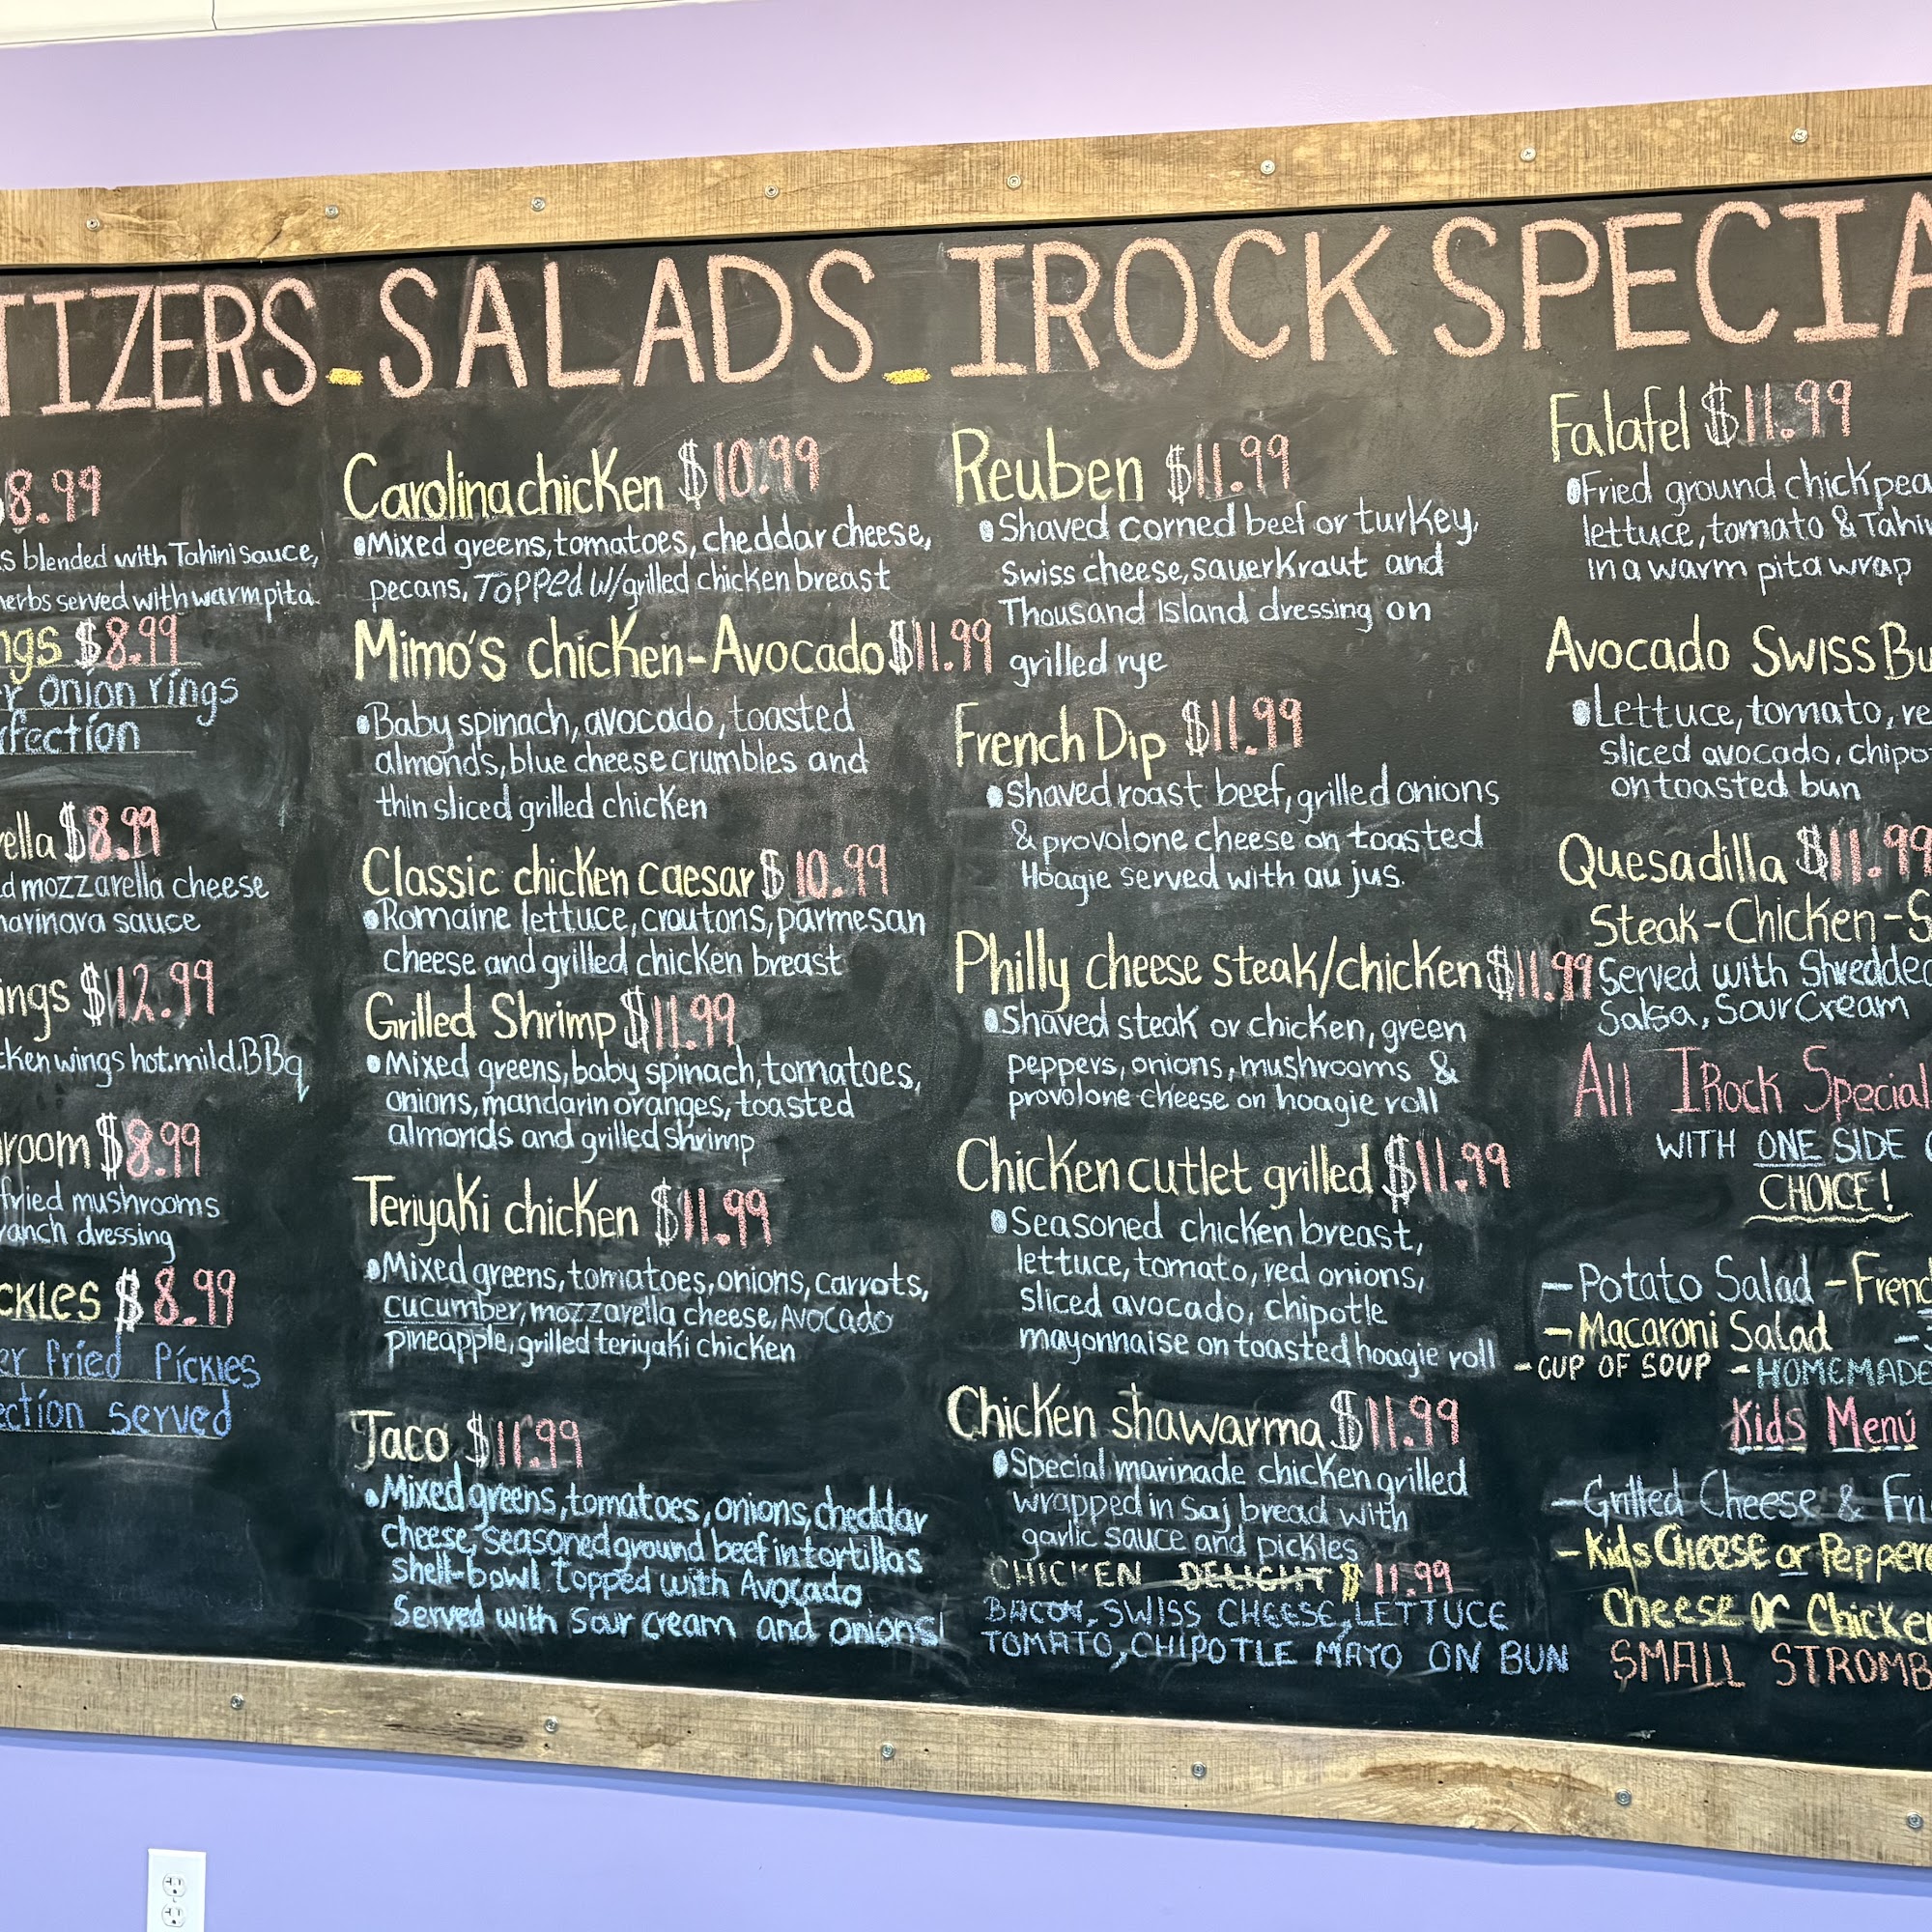 TIZERS - SALADS - IROCK SPECIA
8.99
s blended with Tahini sauce,
herbs served with warm pita.
ngs $8.99
r onion rings
fection
ella $8.99
d mozzarella cheese
marinara sauce
ings $12.99
cken wings hot.mild.BBq
room $8.99
fried mushrooms
ranch dressing
ckles $8.99
er fried Pickles
ection served
Carolina chicken $10.99
•Mixed greens, tomatoes, cheddar cheese,
pecans, TOPPED W/grilled chicken breast
Mimo's chicken-Avocado $11.99
•Baby spinach, avocado, toasted
almonds, blue cheese crumbles and
thin sliced grilled chicken
Classic chicken caesar $10.99
•Romaine lettuce, croutons, parmesan
cheese and grilled chicken breast
Grilled Shrimp $11.99
•Mixed greens, baby spinach, tomatoes,
onions, mandarin oranges, toasted
almonds and grilled shrimp
Teriyaki chicken $11.99
•Mixed greens, tomatoes, onions, carrots,
cucumber, mozzarella cheese, AVOCADO
pineapple, grilled teriyaki chicken
Taco $11.99
•Mixed greens, tomatoes, onions, cheddar
cheese, seasoned ground beef in tortillas
shell-bowl topped with Avocado
Served with sour cream and onions!
Reuben $11.99
•Shaved corned beef or turkey,
swiss cheese, sauerkraut and
Thousand Island dressing on
grilled rye
French Dip $11.99
•Shaved roast beef, grilled onions
& provolone cheese on toasted
Hoagie served with au jus.
Philly cheese steak/chicken $11.99
•Shaved steak or chicken, green
peppers, onions, mushrooms &
provolone cheese on hoagie roll
Chicken cutlet grilled $11.99
•Seasoned chicken breast,
lettuce, tomato, red onions,
sliced avocado, chipotle
mayonnaise on toasted hoagie roll
Chicken shawarma $11.99
•Special marinade chicken grilled
wrapped in Saj bread with
garlic sauce and pickles
CHICKEN DELIGHT $11.99
BACON, SWISS CHEESE, LETTUCE
TOMATO, CHIPOTLE MAYO ON BUN
Falafel $11.99
•Fried ground chickpea
lettuce, tomato & Tahi
in a warm pita wrap
Avocado Swiss Bu
•Lettuce, tomato, re
sliced avocado, chipo
on toasted bun
Quesadilla $11.99
Steak-Chicken-S
Served with Shredded
Salsa, Sour Cream
All IRock Special
WITH ONE SIDE
CHOICE!
-Potato Salad -Frenc
-Macaroni Salad -
-CUP OF SOUP -HOMEMADE
Kids Menu
-Grilled Cheese & Fri
-Kids Cheese or Peppero
Cheese or Chicken
SMALL STROMB